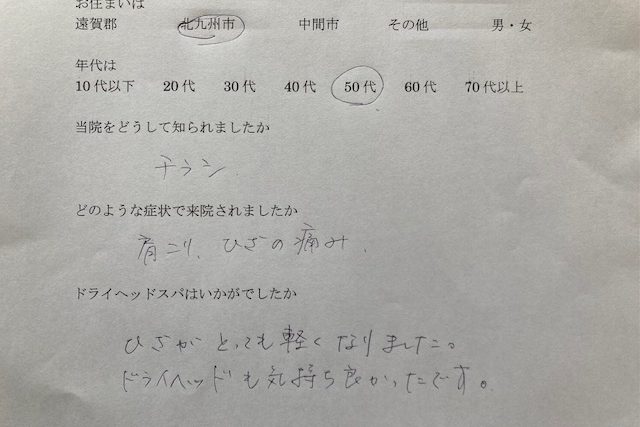 お住まいは
遠賀郡 北九州市 中間市 その他 男・女
年代は
10代以下 20代 30代 40代 50代 60代 70代以上
当院をどうして知られましたか
チラシ.
どのような症状で来院されましたか
肩こり、ひざの痛み.
ドライヘッドスパはいかがでしたか
ひざがとっても軽くなりました。
ドライヘッドも気持ち良かったです。